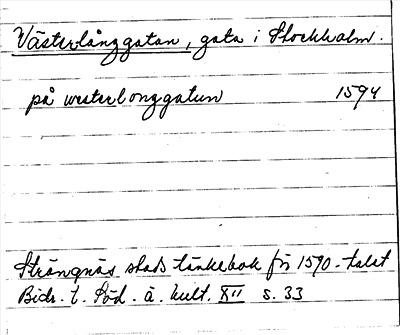 Västerlånggatan, gata i Stockholm.
på westerlonggatun 1594
Strängnäs stads tänkebok fr 1590-talet
Bidr. t. Söd. ä. kult. XII s. 33